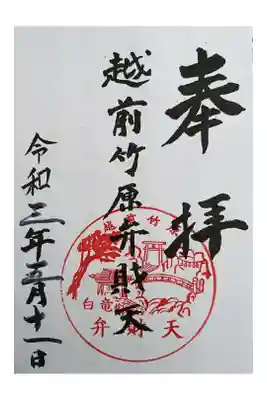 奉拝
越前竹原弁財天
令和三年五月十一日
越前竹原
白竜弁財天